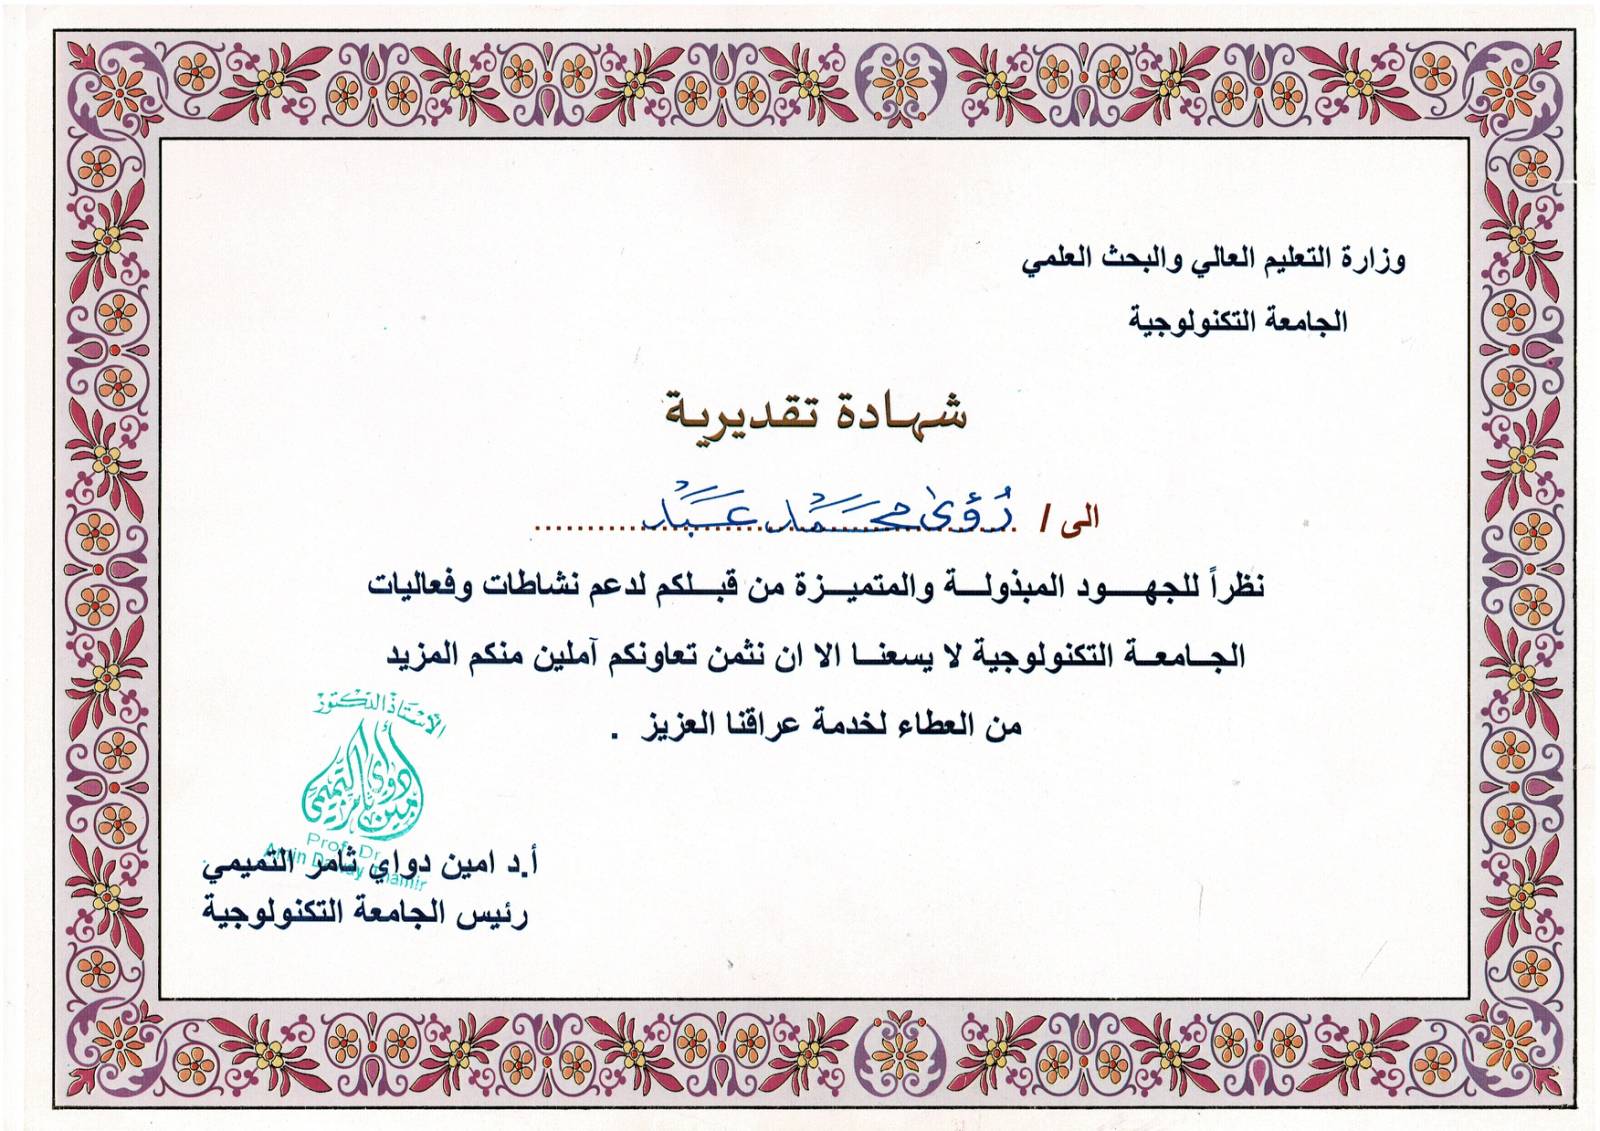 وزارة التعليم العالي والبحث العلمي
الجامعة التكنولوجية
شهادة تقديرية
الى / رُؤى محمَّد عَبد
نظراً للجهود المبذولة والمتميزة من قبلكم لدعم نشاطات وفعاليات
الجامعة التكنولوجية لا يسعنا الا ان نثمن تعاونكم آملين منكم المزيد
من العطاء لخدمة عراقنا العزيز .
الأستاذ الدكتور
أمين دواي ثامر التميمي
Prof. Dr
Amin Daway Thamir
أ.د امين دواي ثامر التميمي
رئيس الجامعة التكنولوجية